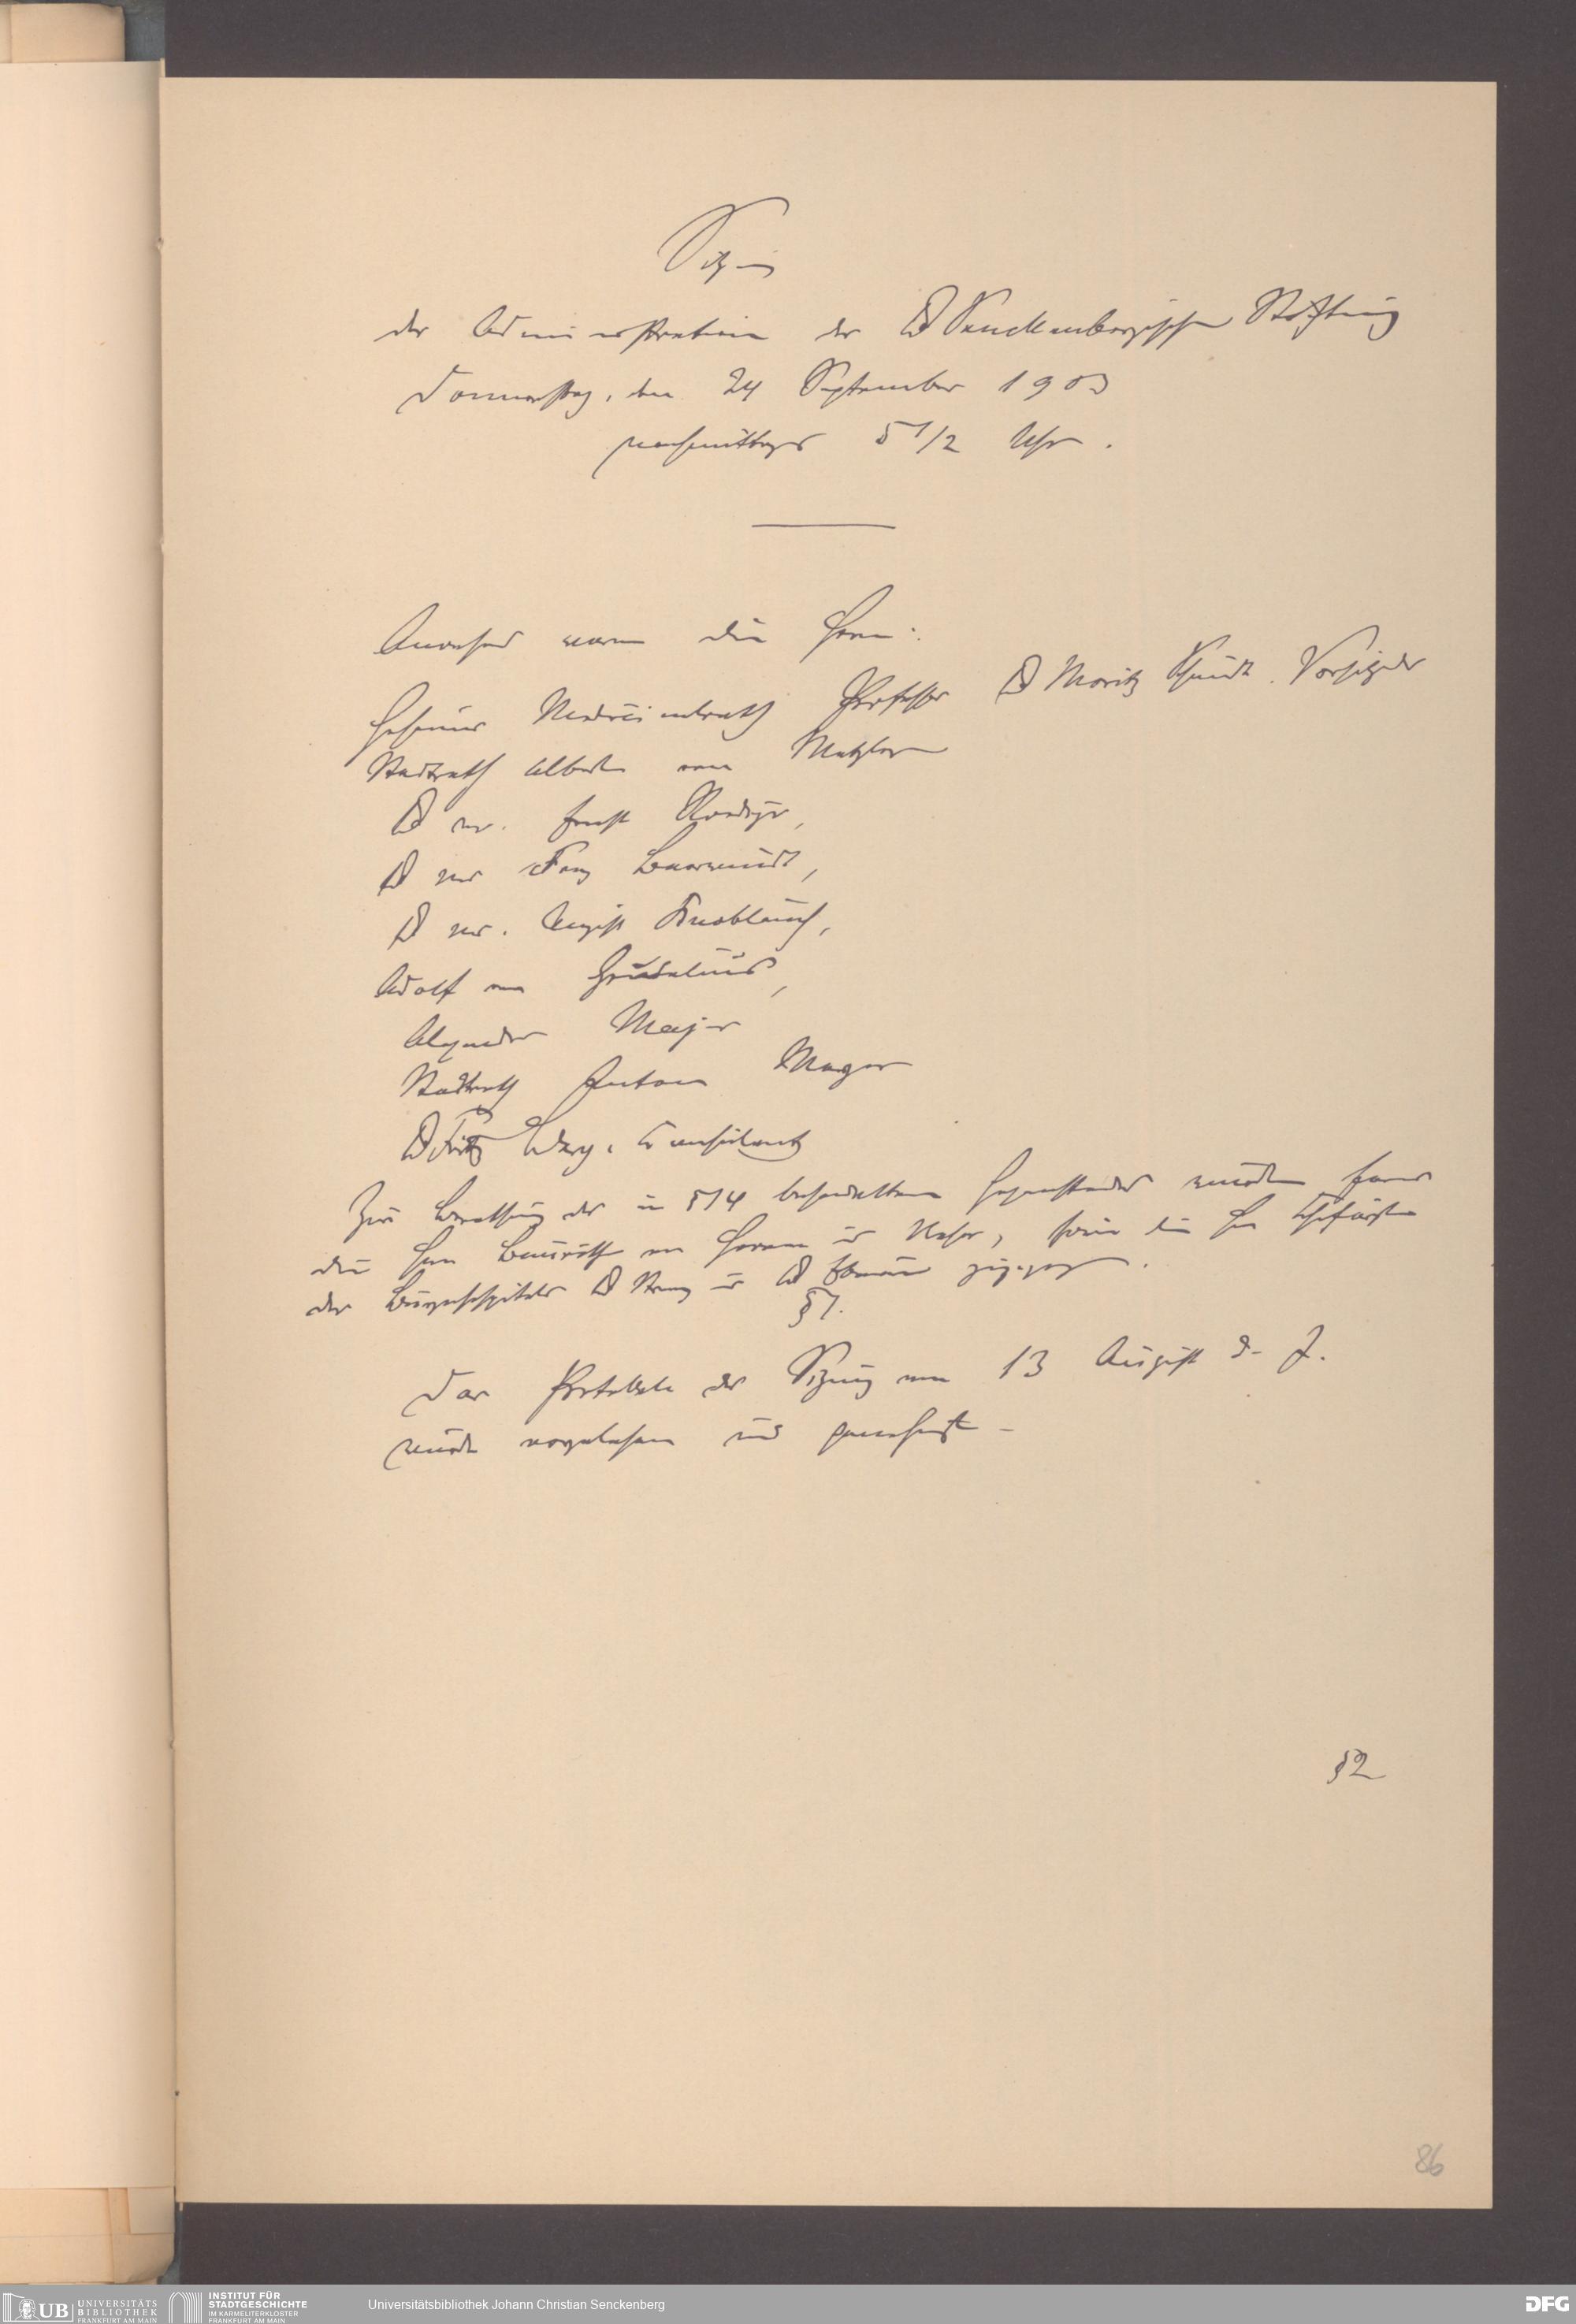 Sitzung
der Administration der Dr Senckenbergischen Stiftung
Donnerstag, den 24 September 1903
nachmittags 5 1/2 Uhr.
Anwesend waren die Herren:
Geheimer Medicinalrath Professor Dr Moritz Schmidt. Vorsitzender
Stadtrath Albert von Metzler
Dr med. Ernst Roediger,
Dr med
Dr med. August Knoblauch,
Adolf von Grunelius,
Alexander Majer
Stadtrath Anton Meyer
Dr Fritz Berg, Consulent
Zur Berathung der in §14 behandelten Gegenstände wurden ferner
die Herren Bauräthe von Hoven u Neher, sowie die Herren Chefärzte
des Bürgerhospitals Dr u Dr zugezogen.
§1.
Das Protokoll der Sitzung vom 13 August d. J.
wurde vorgelesen und genehmigt.
§2
86
UB UNIVERSITÄTS BIBLIOTHEK FRANKFURT AM MAIN
INSTITUT FÜR STADTGESCHICHTE IM KARMELITERKLOSTER FRANKFURT AM MAIN
Universitätsbibliothek Johann Christian Senckenberg
DFG